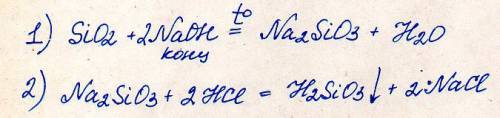 1) SiO2 + 2NaOH t° = Na2SiO3 + H2O
конц
2) Na2SiO3 + 2HCl = H2SiO3↓ + 2NaCl